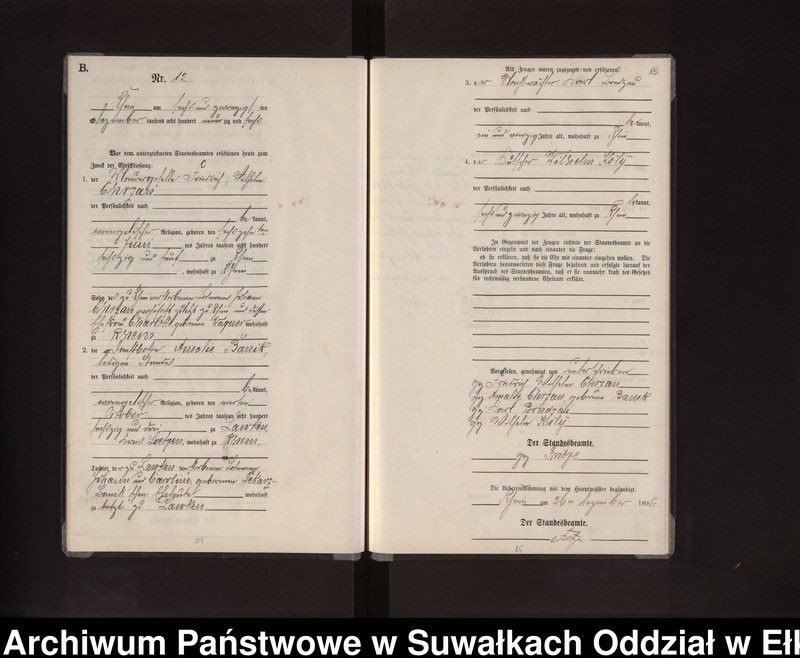 B.
Nr. 12
Rhein am sechs und zwanzigsten
Dezember tausend acht hundert neunzig und sechs
Vor dem unterzeichneten Standesbeamten erschienen heute zum
Zweck der Eheschließung:
1. der Friedrich Wilhelm
Chrzan
der Persönlichkeit nach
be kannt,
evangelischer Religion, geboren den sechszehnten
Juni des Jahres tausend acht hundert
sechszig und fünf zu Rhein
, wohnhaft zu Rhein
Sohn des zu Rhein verstorbenen Johann
Chrzan zuletzt zu Rhein und dessen
Ehefrau Charlotte geborenen Wagner wohnhaft
zu Rhein
2. die Amalie Barrik,
ledigen Standes
der Persönlichkeit nach
be kannt,
evangelischer Religion, geboren den vierten
Oktober des Jahres tausend acht hundert
sechszig und drei zu Lawken,
Kreis Loetzen, wohnhaft zu Rhein
Tochter der zu Lawken verstorbenen
Johann und Caroline, geborenen
wohnhaft
zu letzt zu Lawken
Als Zeugen waren zugezogen und erschienen:
3. der Nachtwächter Karl Bondzau
der Persönlichkeit nach
be kannt,
ein und vierzig Jahre alt, wohnhaft zu Rhein
4. der Wilhelm Koly
der Persönlichkeit nach
be kannt,
sechs und zwanzig Jahre alt, wohnhaft zu Rhein
In Gegenwart der Zeugen richtete der Standesbeamte an die
Verlobten einzeln und nach einander die Frage:
ob sie erklären, daß sie die Ehe mit einander eingehen wollen. Die
Verlobten beantworteten diese Frage bejahend und erfolgte hierauf der
Ausspruch des Standesbeamten, daß er sie nunmehr kraft des Gesetzes
für rechtmäßig verbundene Eheleute erkläre.
Vorgelesen, genehmigt und unterschrieben
gez Friedrich Wilhelm Chrzan
gez Amalie Chrzan, geborene Barrik
gez Karl Bondzau
gez Wilhelm Koly
Der Standesbeamte.
gez Fritze
Die Uebereinstimmung mit dem Hauptregister beglaubigt.
Rhein am 26ten Dezember 1896
Der Standesbeamte.
Fritze
Archiwum Państwowe w Suwałkach Oddział w Ełk